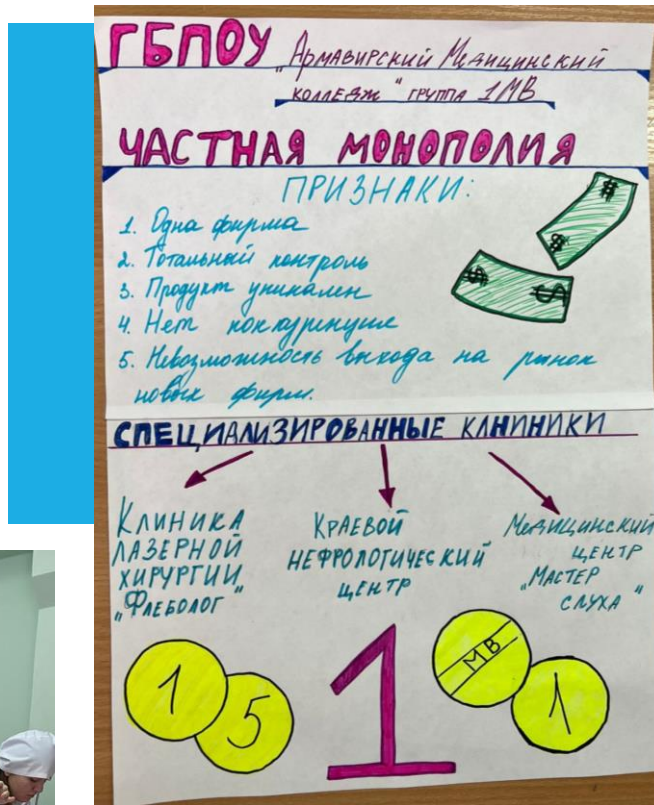 ГБПОУ „Армавирский Медицинский
колледж“ группа 1МВ
ЧАСТНАЯ МОНОПОЛИЯ
ПРИЗНАКИ:
1. Одна фирма
2. Тотальный контроль
3. Продукт уникален
4. Нет конкуренции
5. Невозможность выхода на рынок
новых фирм.
СПЕЦИАЛИЗИРОВАННЫЕ КЛИНИКИ
КЛИНИКА
ЛАЗЕРНОЙ
ХИРУРГИИ
„ФЛЕБОЛОГ“
КРАЕВОЙ
НЕФРОЛОГИЧЕСКИЙ
ЦЕНТР
МЕДИЦИНСКИЙ
ЦЕНТР
„МАСТЕР
СЛУХА“
1
5
1
МВ
1